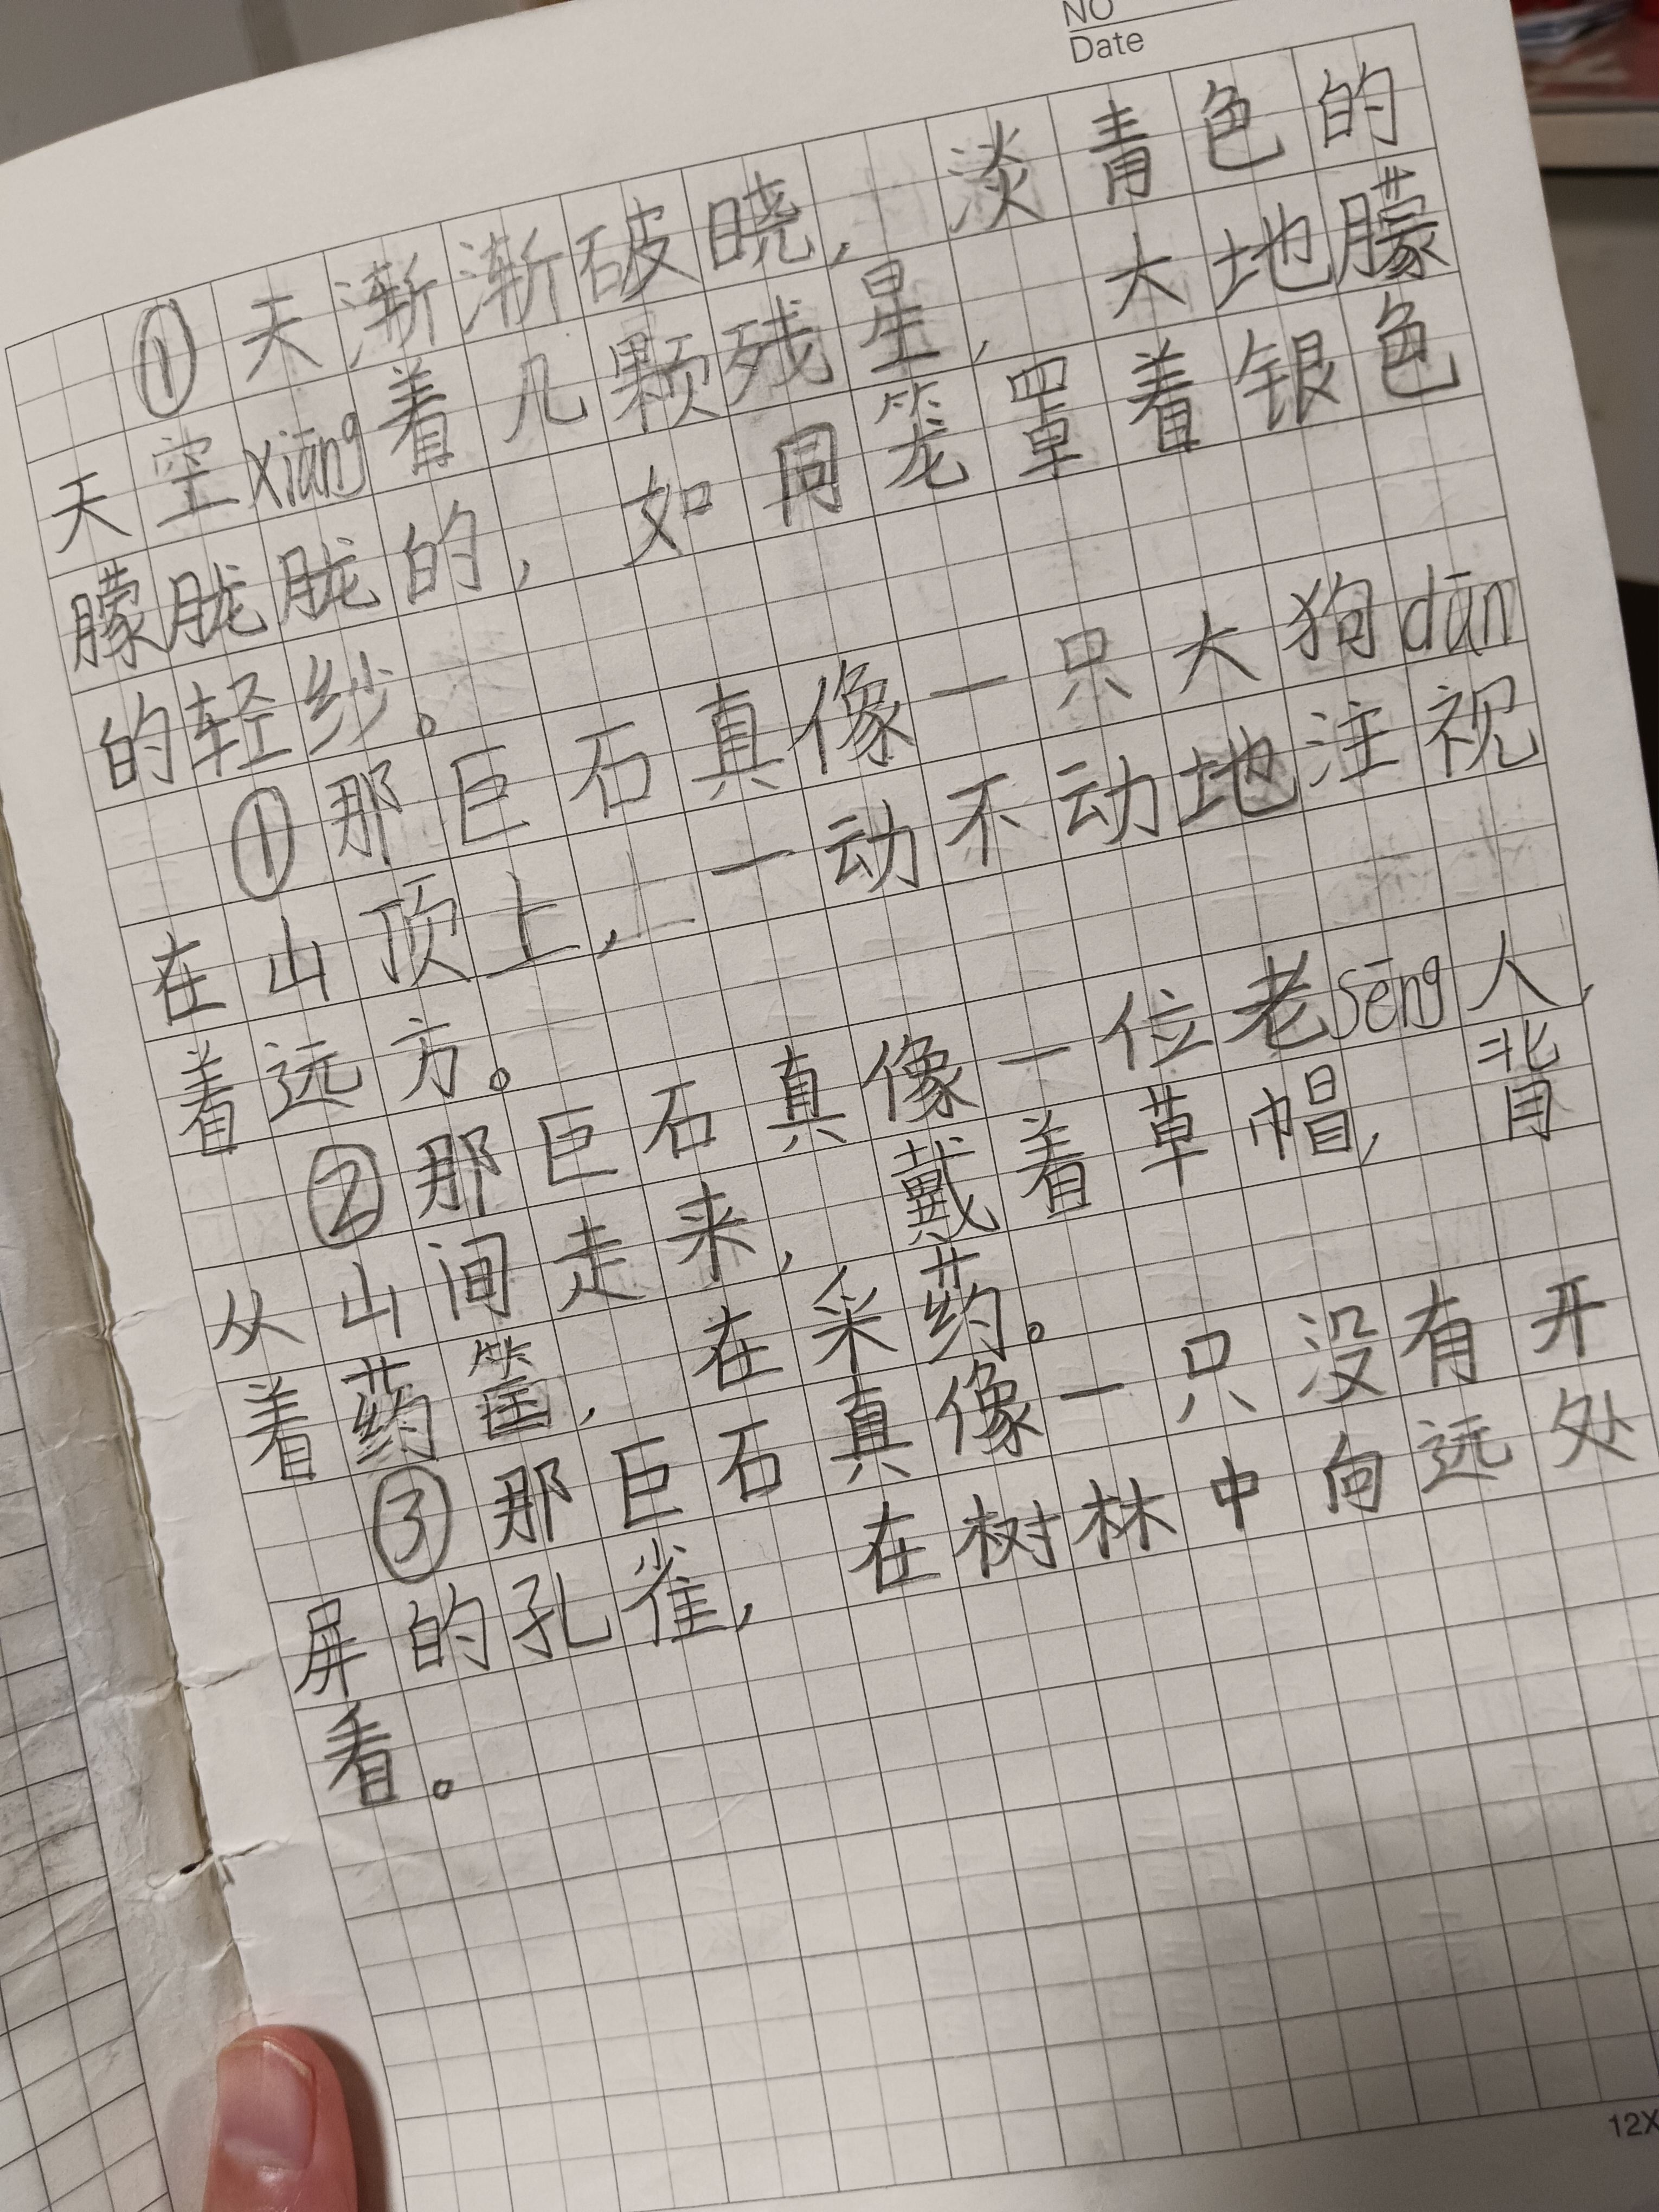 NO
Date
①天渐渐破晓，淡青色的
天空xiāng着几颗残星，大地朦
朦胧胧的，如同笼罩着银色
的轻纱。
①那巨石真像一只大狗dūn
在山顶上，一动不动地注视
着远方。
②那巨石真像一位老sēng人，
从山间走来，戴着草帽，背
着药筐，在采药。
③那巨石真像一只没有开
屏的孔雀，在树林中向远处
看。
12X